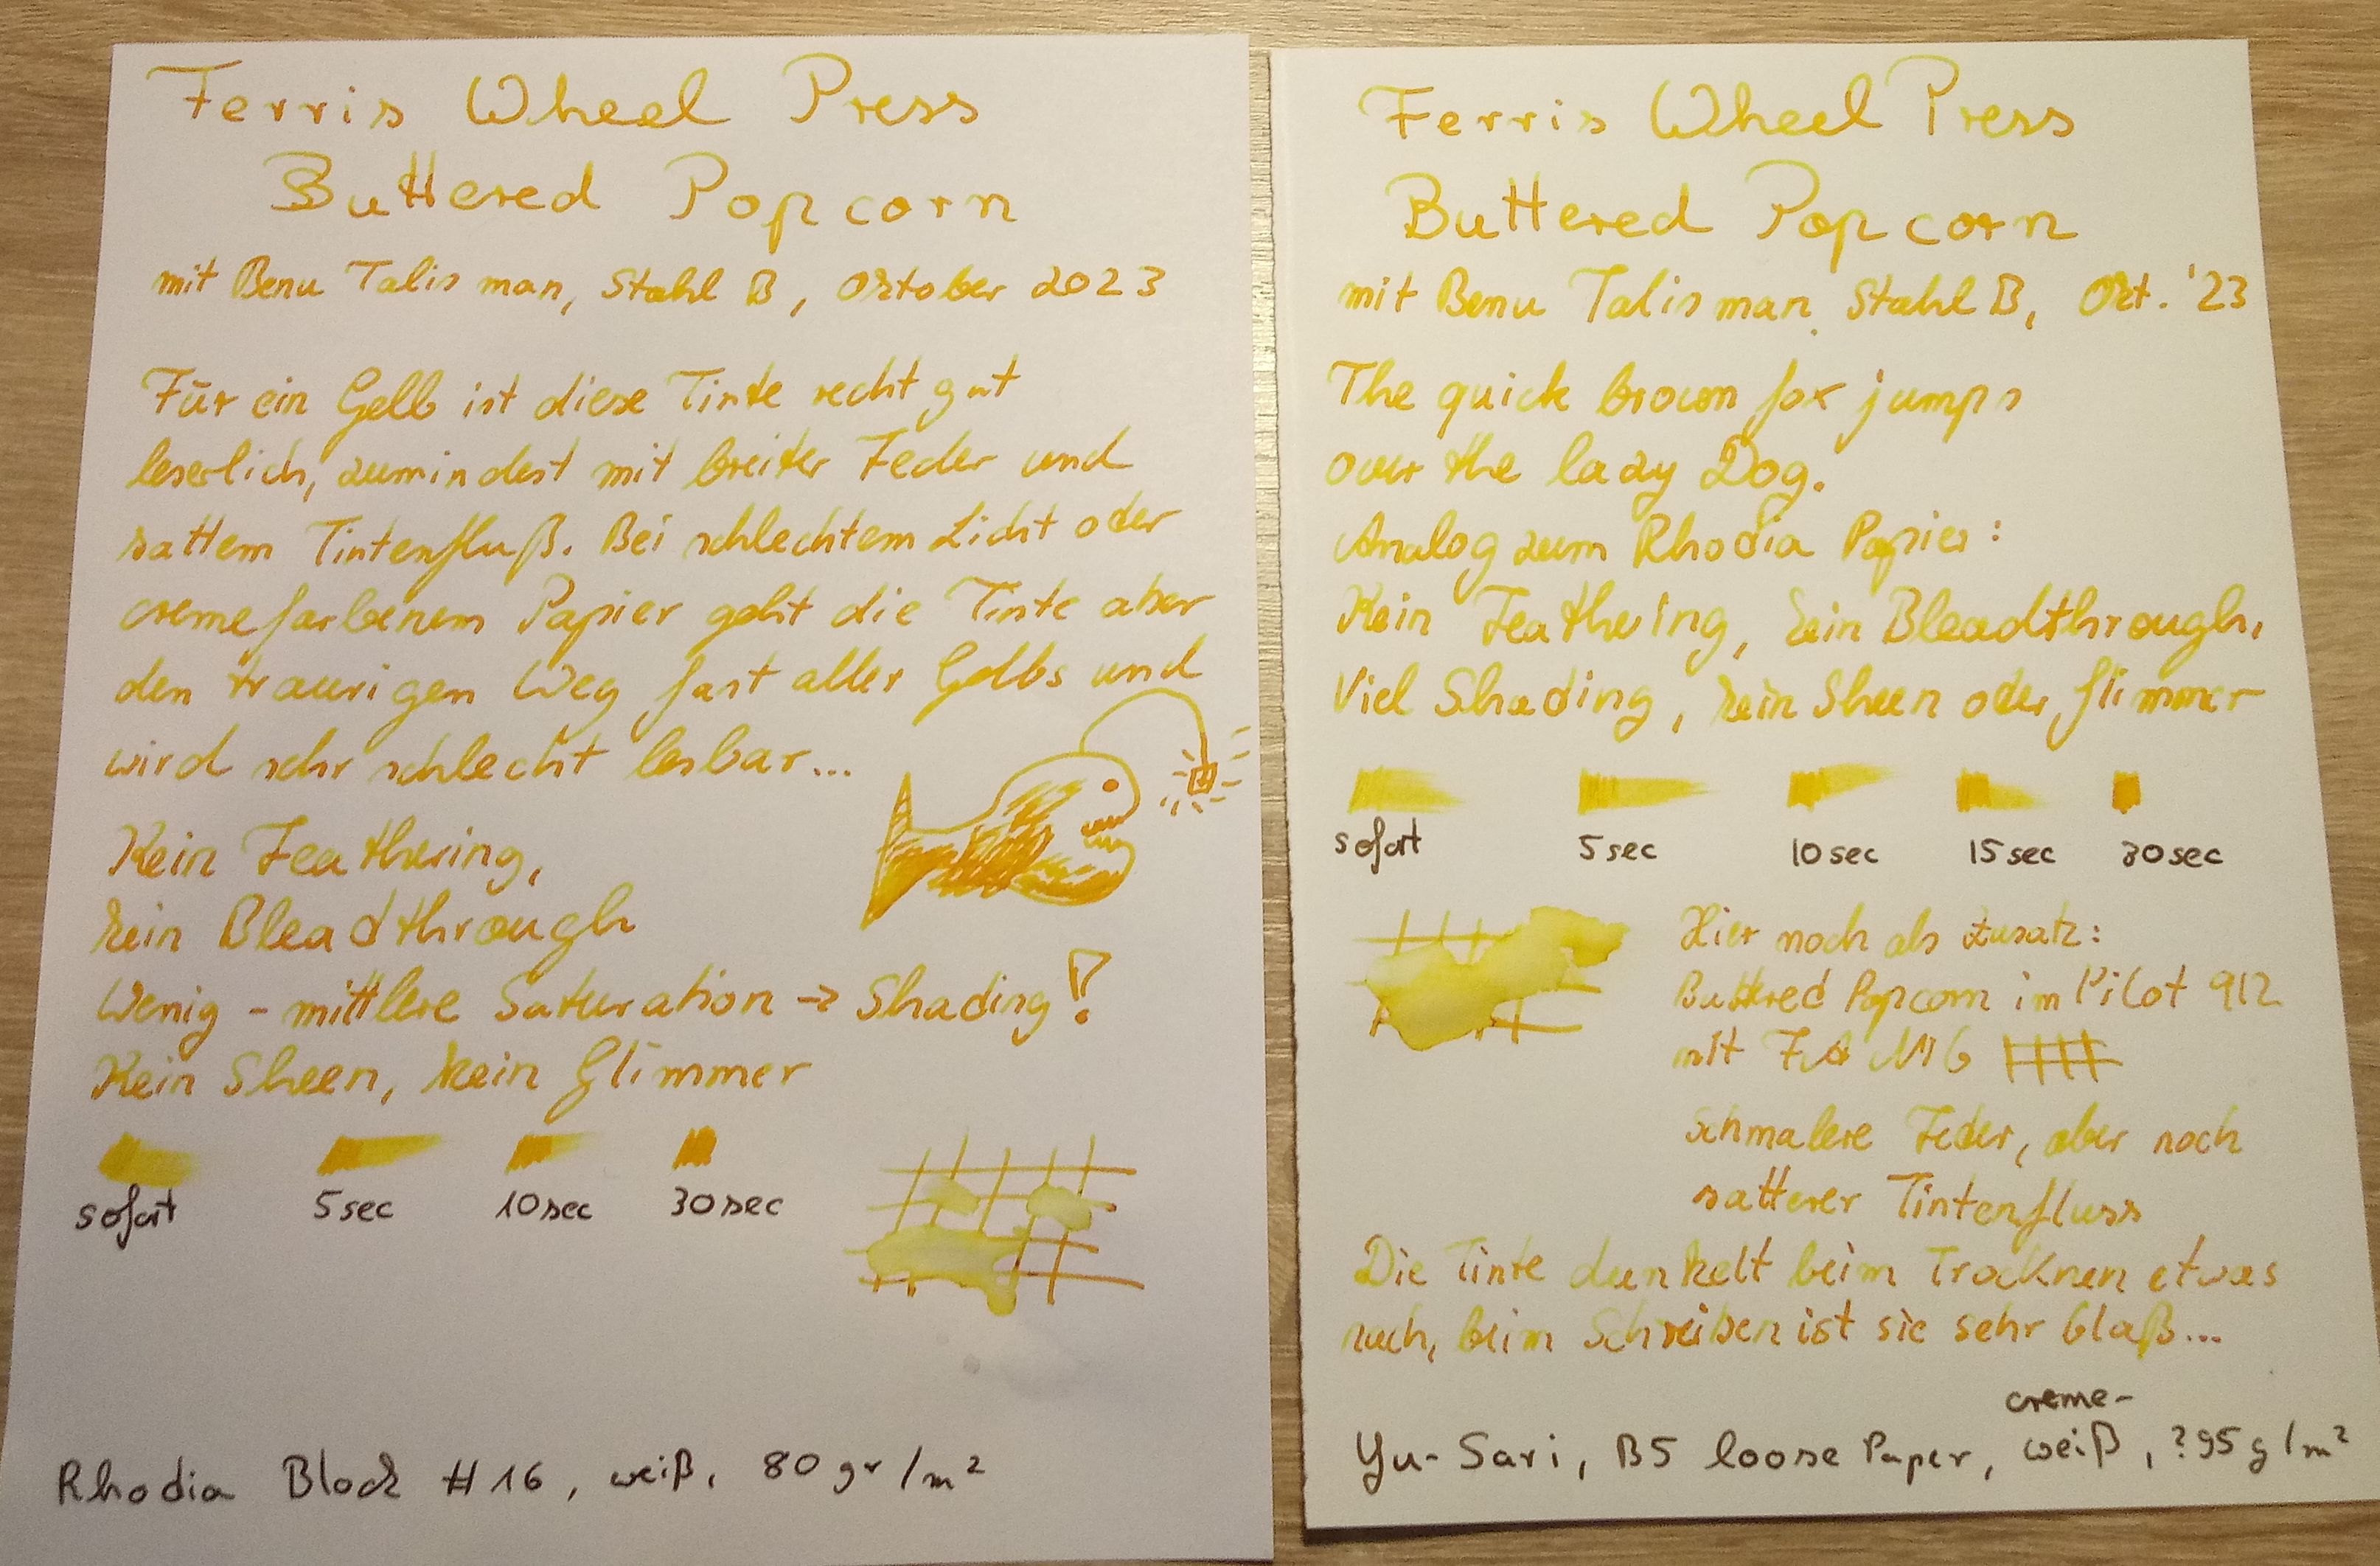 Ferris Wheel Press
Buttered Popcorn
mit Benu Talisman, Stahl B, Oktober 2023
Für ein Gelb ist diese Tinte recht gut
leserlich, zumindest mit breiter Feder und
sattem Tintenfluß. Bei schlechtem Licht oder
cremefarbenem Papier geht die Tinte aber
den traurigen Weg fast aller Gelbs und
wird sehr schlecht lesbar...
Kein Feathering,
kein Bleadthrough
Wenig - mittlere Saturation → Shading!
Kein Sheen, kein Glimmer
sofort 5sec 10sec 30sec
Rhodia Block #16, weiß, 80 gr/m²
Ferris Wheel Press
Buttered Popcorn
mit Benu Talisman, Stahl B, Okt. '23
The quick brown fox jumps
over the lazy Dog.
Analog zum Rhodia Papier:
Kein Feathering, kein Bleadthrough,
Viel Shading, kein Sheen oder Glimmer
sofort 5sec 10sec 15sec 30sec
Hier noch als Zusatz:
Buttered Popcorn im Pilot 912
mit FA
Schmalere Feder, aber noch
satterer Tintenfluss
Die Tinte dunkelt beim Trocknen etwas
nach, beim Schreiben ist sie sehr blaß...
creme-
Yu-Sari, B5 loose Paper, weiß, ?95g/m²